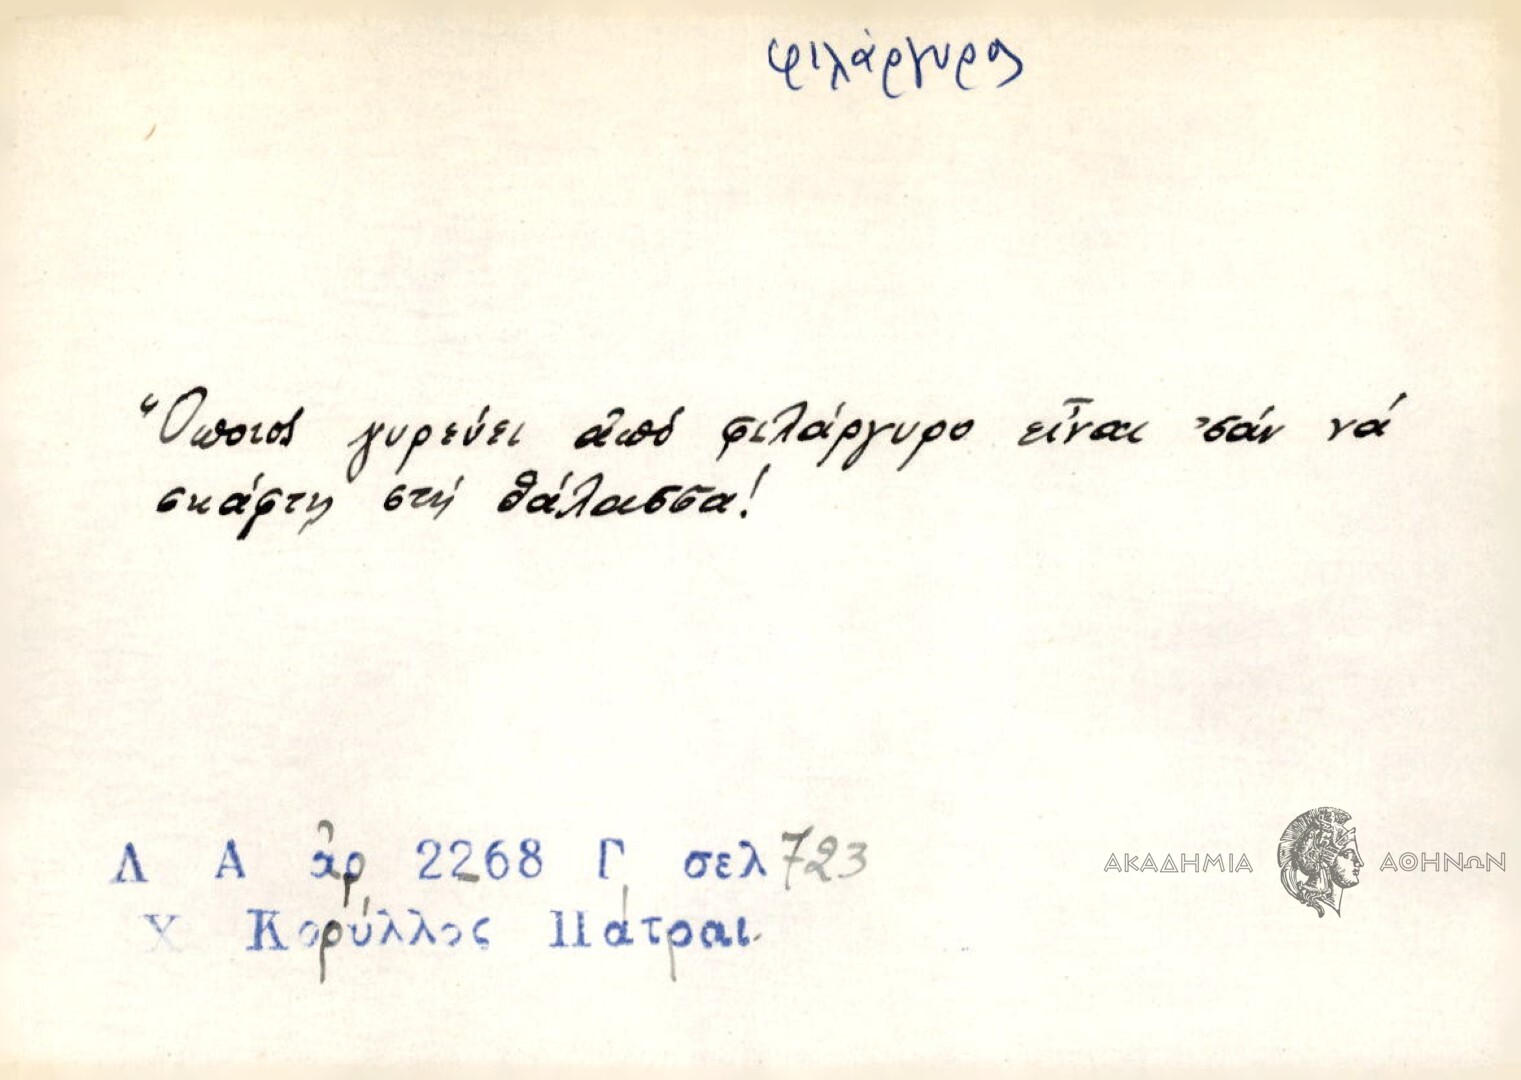 φιλάργυρος
Ὅποιος γυρεύει ἀπό φιλάργυρο εἶναι 'σάν νά
σκάφτῃ στή θάλασσα!
Λ Α ἀρ 2268 Γ σελ 723
Χ Κορύλλος Πάτραι
ΑΚΑΔΗΜΙΑ ΑΘΗΝΩΝ